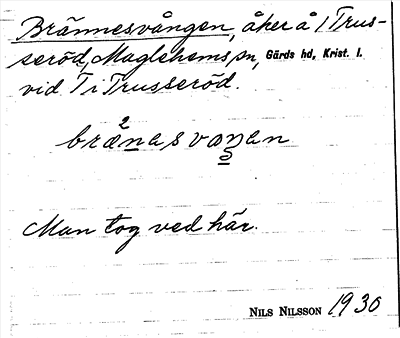 Brännesvången, åker å 1 Trus-
seröd, Maglehems sn, Gärds hd, Krist. l.
vid T i Trusseröd.
Man tog ved här.
NILS NILSSON 1930